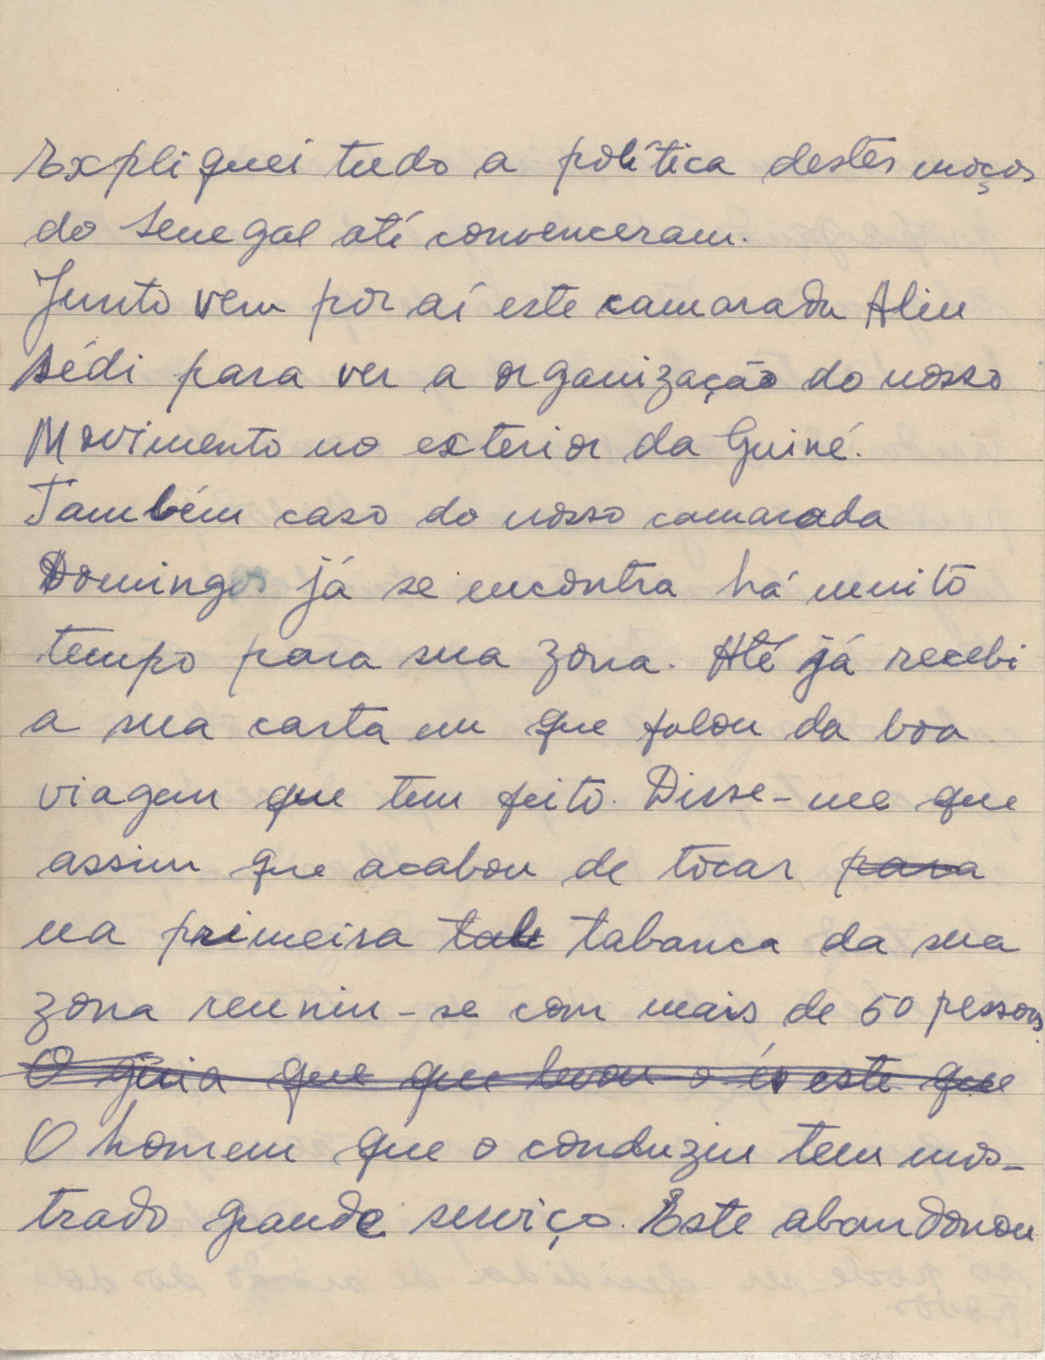 Expliquei tudo a política destes moços
do Senegal até convenceram.
Junto vem por aí este camarada Aliu
Sédi para ver a organização do nosso
Movimento no exterior da Guiné.
Também caso do nosso camarada
Domingos já se encontra há muito
tempo para sua zona. Até já recebi
a sua carta em que falou da boa
viagem que tem feito. Disse-me que
assim que acabou de tocar para
na primeira tab tabanca da sua
zona reuniu-se com mais de 50 pessoas.
O guia que que levou o é este que
O homem que o conduziu tem mos-
trado grande serviço. Este abandonou